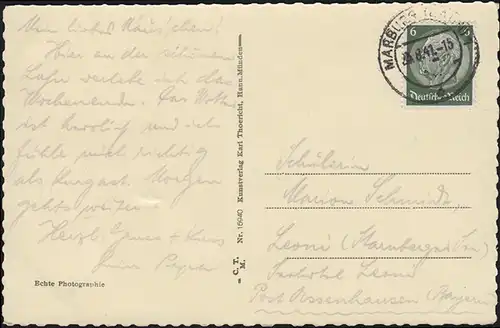 Mein liebes Mäuschen!
Hier an der schönen
Lahn verlebe ich das
Wochenende. Das Wetter
ist herrlich und ich
fühle mich richtig
als Kurgast. Morgen
gehts weiter
Herzl. Gruss + Kuss
Dein
Echte Photographie
= C. T. M. Nr. 15640 Kunstverlag Karl Thoericht, Hann.Münden
MARBURG
6.41.-15
6
Deutsches Reich
Schülerin
Marion Schmidt,
Leoni (Starnberger See)
Seehotel Leoni
Post Assenhausen (Bayern)